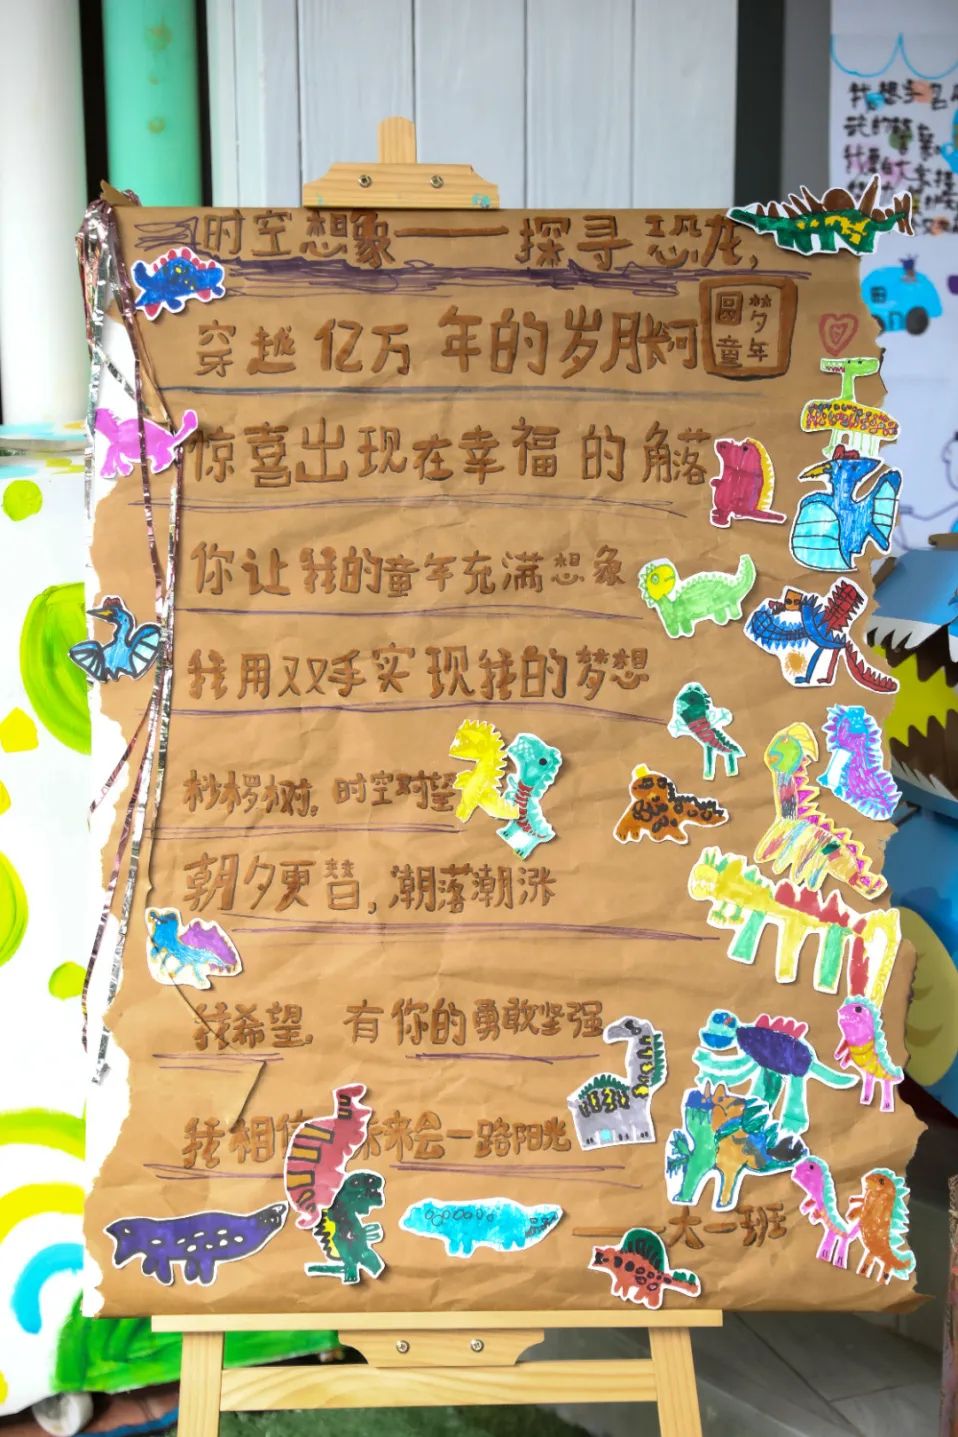 时空想象——探寻恐龙,
穿越亿万年的岁月长河
圆梦
童年
惊喜出现在幸福的角落
你让我的童年充满想象
我用双手实现我的梦想
桫椤树。时空对望
朝夕更替,潮落潮涨
我希望。有你的勇敢坚强
我相信 来会一路阳光
——大一班
我想
我的